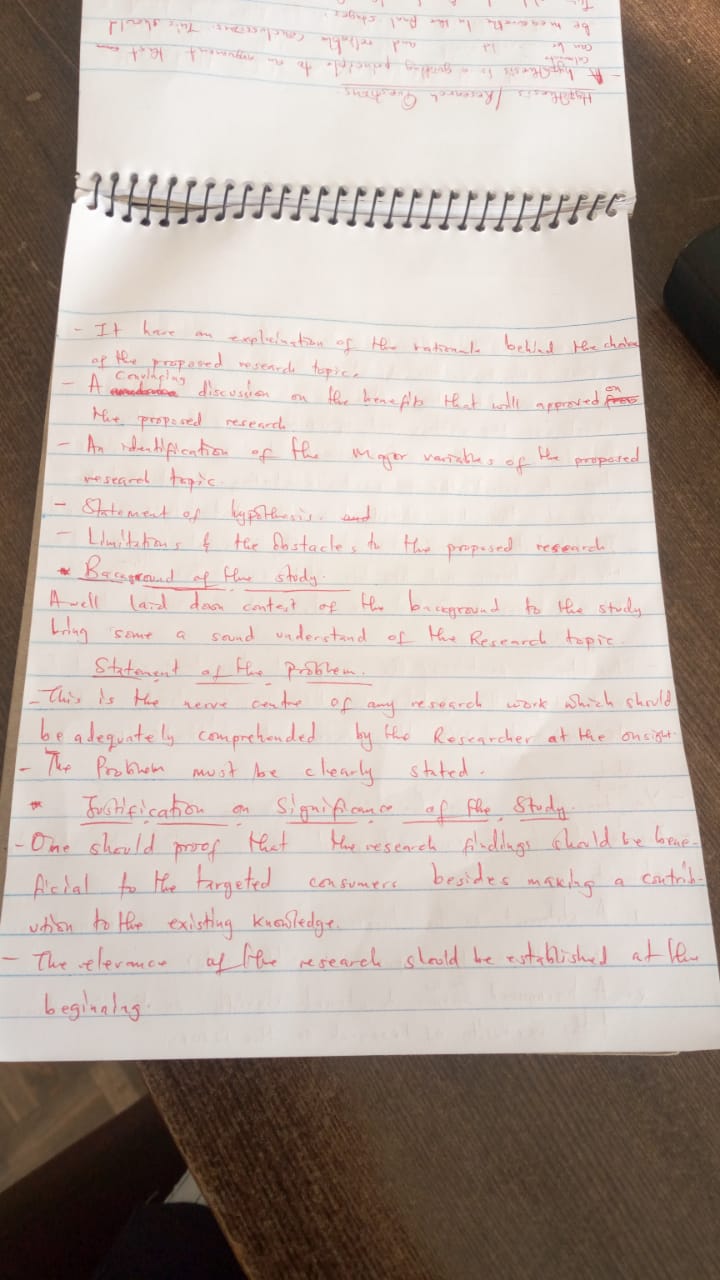 Hypothesis / Research Questions.
- A hypothesis is a guiding principle to an argument that
can be and reliable conclusions. This should
be measurable in the final stages.
- It have an explaination of the rationale behind the choice
of the proposed research topic.
- A convincing discussion on the benefits that will approved on
the proposed research
- An identification of the major variables of the proposed
research topic.
- Statement of hypothesis. and
- Limitations & the obstacles to the proposed research.
* Background of the study.
A well laid down context of the background to the study
bring some a sound understand of the Research topic
Statement of the problem.
- This is the nerve centre of any research work which should
be adequately comprehended by the Researcher at the onsight.
- The Problem must be clearly stated.
* Justification on Significance of the Study.
- One should proof that the research findings should be bene-
ficial to the targeted consumers besides making a contrib-
ution to the existing knowledge.
- The relevance of the research should be established at the
beginning.